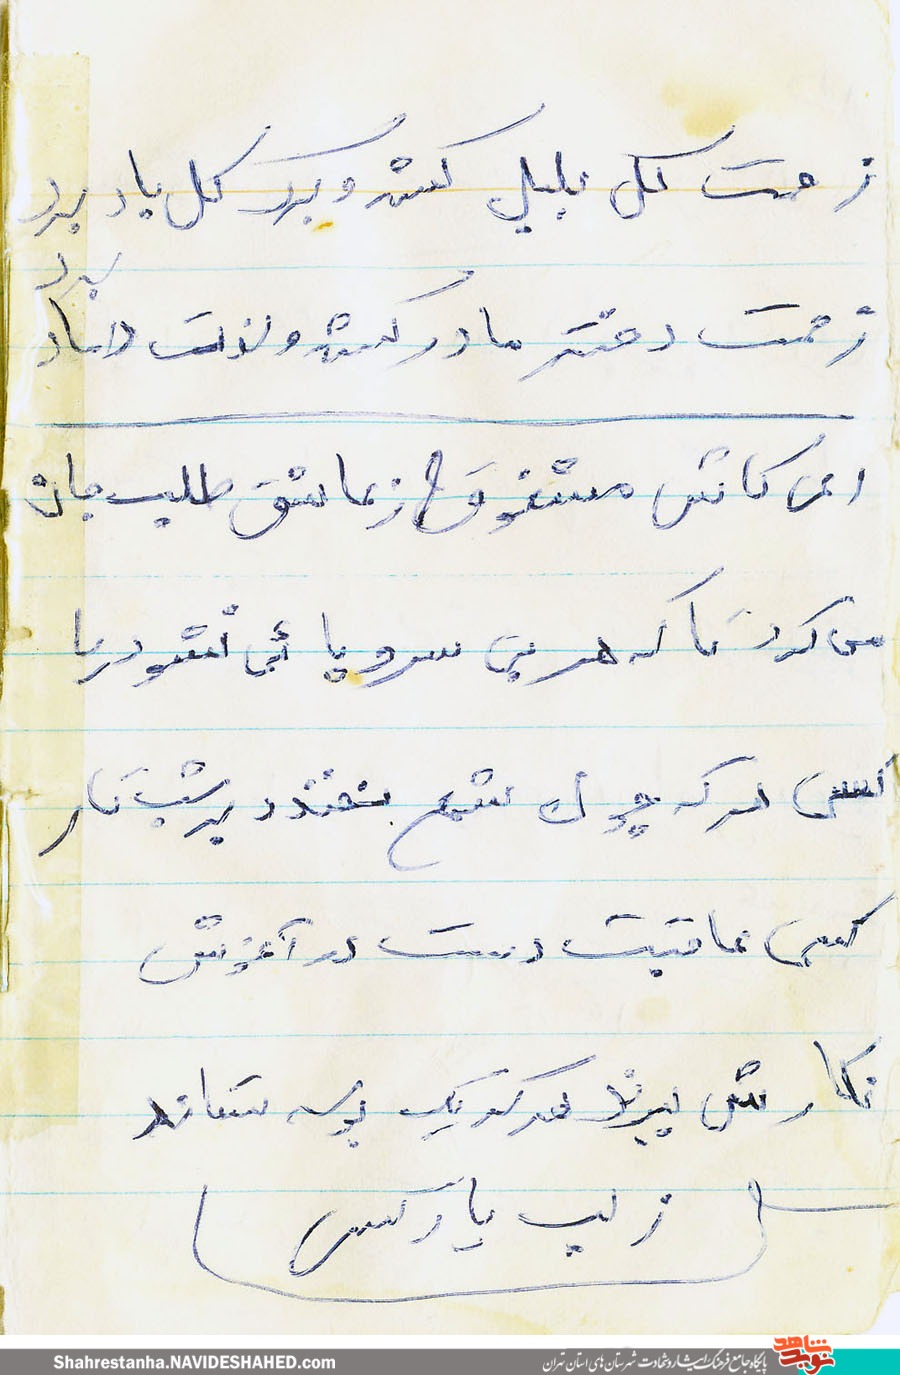 زحمت گل بلبل کشد و برگ گل باد برد
برد
زحمت دختر مادر کشد و لذت داماد
ای کاش معشوق از عاشق طلب جان
می کرد تا که هر بی سر و پائی نشود یا
کسی هر که چون شمع بخندد به شب تار
کسی عاقبت دست در آغوش
نگارش ببرد هر که یک بوسه ستاند
ز لب یار کسی
Shahrestanha.NAVIDESHAHED.com
پایگاه جامع فرهنگ ایثار و شهادت شهرستان های استان تهران
نوید شاهد